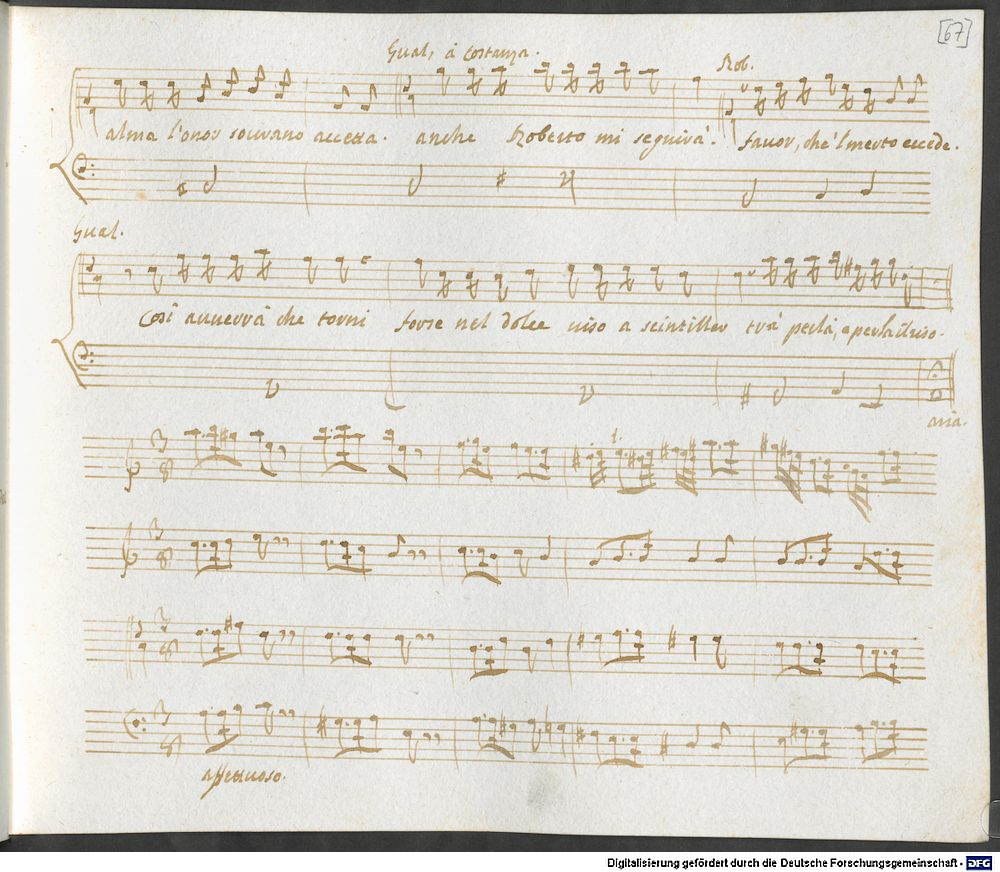 [67]
Gual, à Costanza.
Rob.
alma l'onor souvano accetta. anche Roberto mi seguirà. favor, che'l merto eccede.
Gual.
Così avverrà che torni forse nel dolce viso a scintillar trà perla, e perla il riso.
aria.
affettuoso.
Digitalisierung gefördert durch die Deutsche Forschungsgemeinschaft - DFG